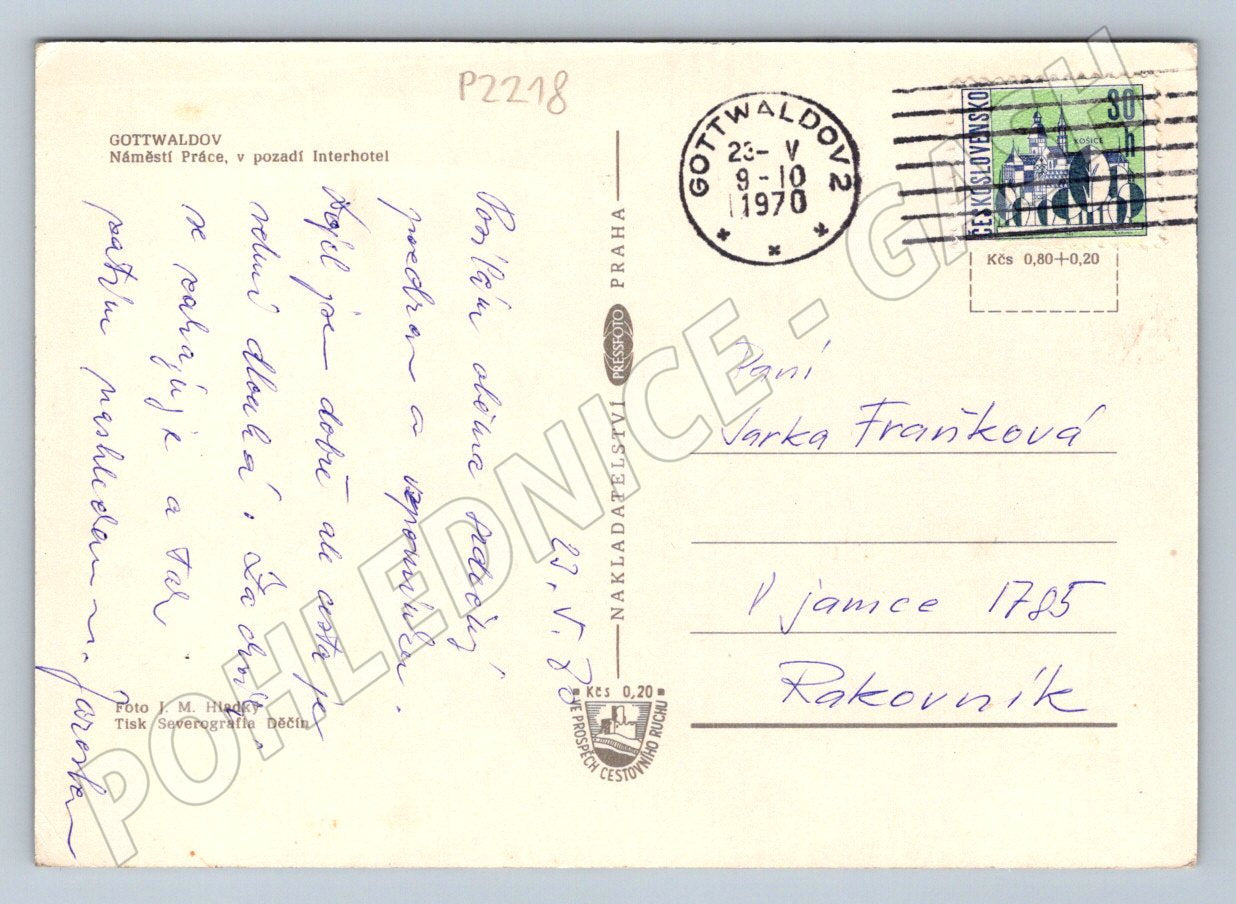 P2218
GOTTWALDOV
Náměstí Práce, v pozadí Interhotel
Posílám oběma srdečný
pozdrav a vzpomínku.
Dojel jsem dobře ale cesta je
velmi dlouhá. Za chvíli
se zahajuje a tak
zatím nashledanou. Jaroslav
23. V. 70
Foto J. M. Hladký
Tisk Severografia Děčín
NAKLADATELSTVÍ PRESSFOTO PRAHA
Kčs 0,20
VE PROSPĚCH CESTOVNÍHO RUCHU
GOTTWALDOV 2
23- V
9-10
1970
ČESKOSLOVENSKO
30 h
KOŠICE
Kčs 0,80+0,20
Paní
Jarka Fraňková
V jamce 1785
Rakovník
POHLEDNICE - GASH